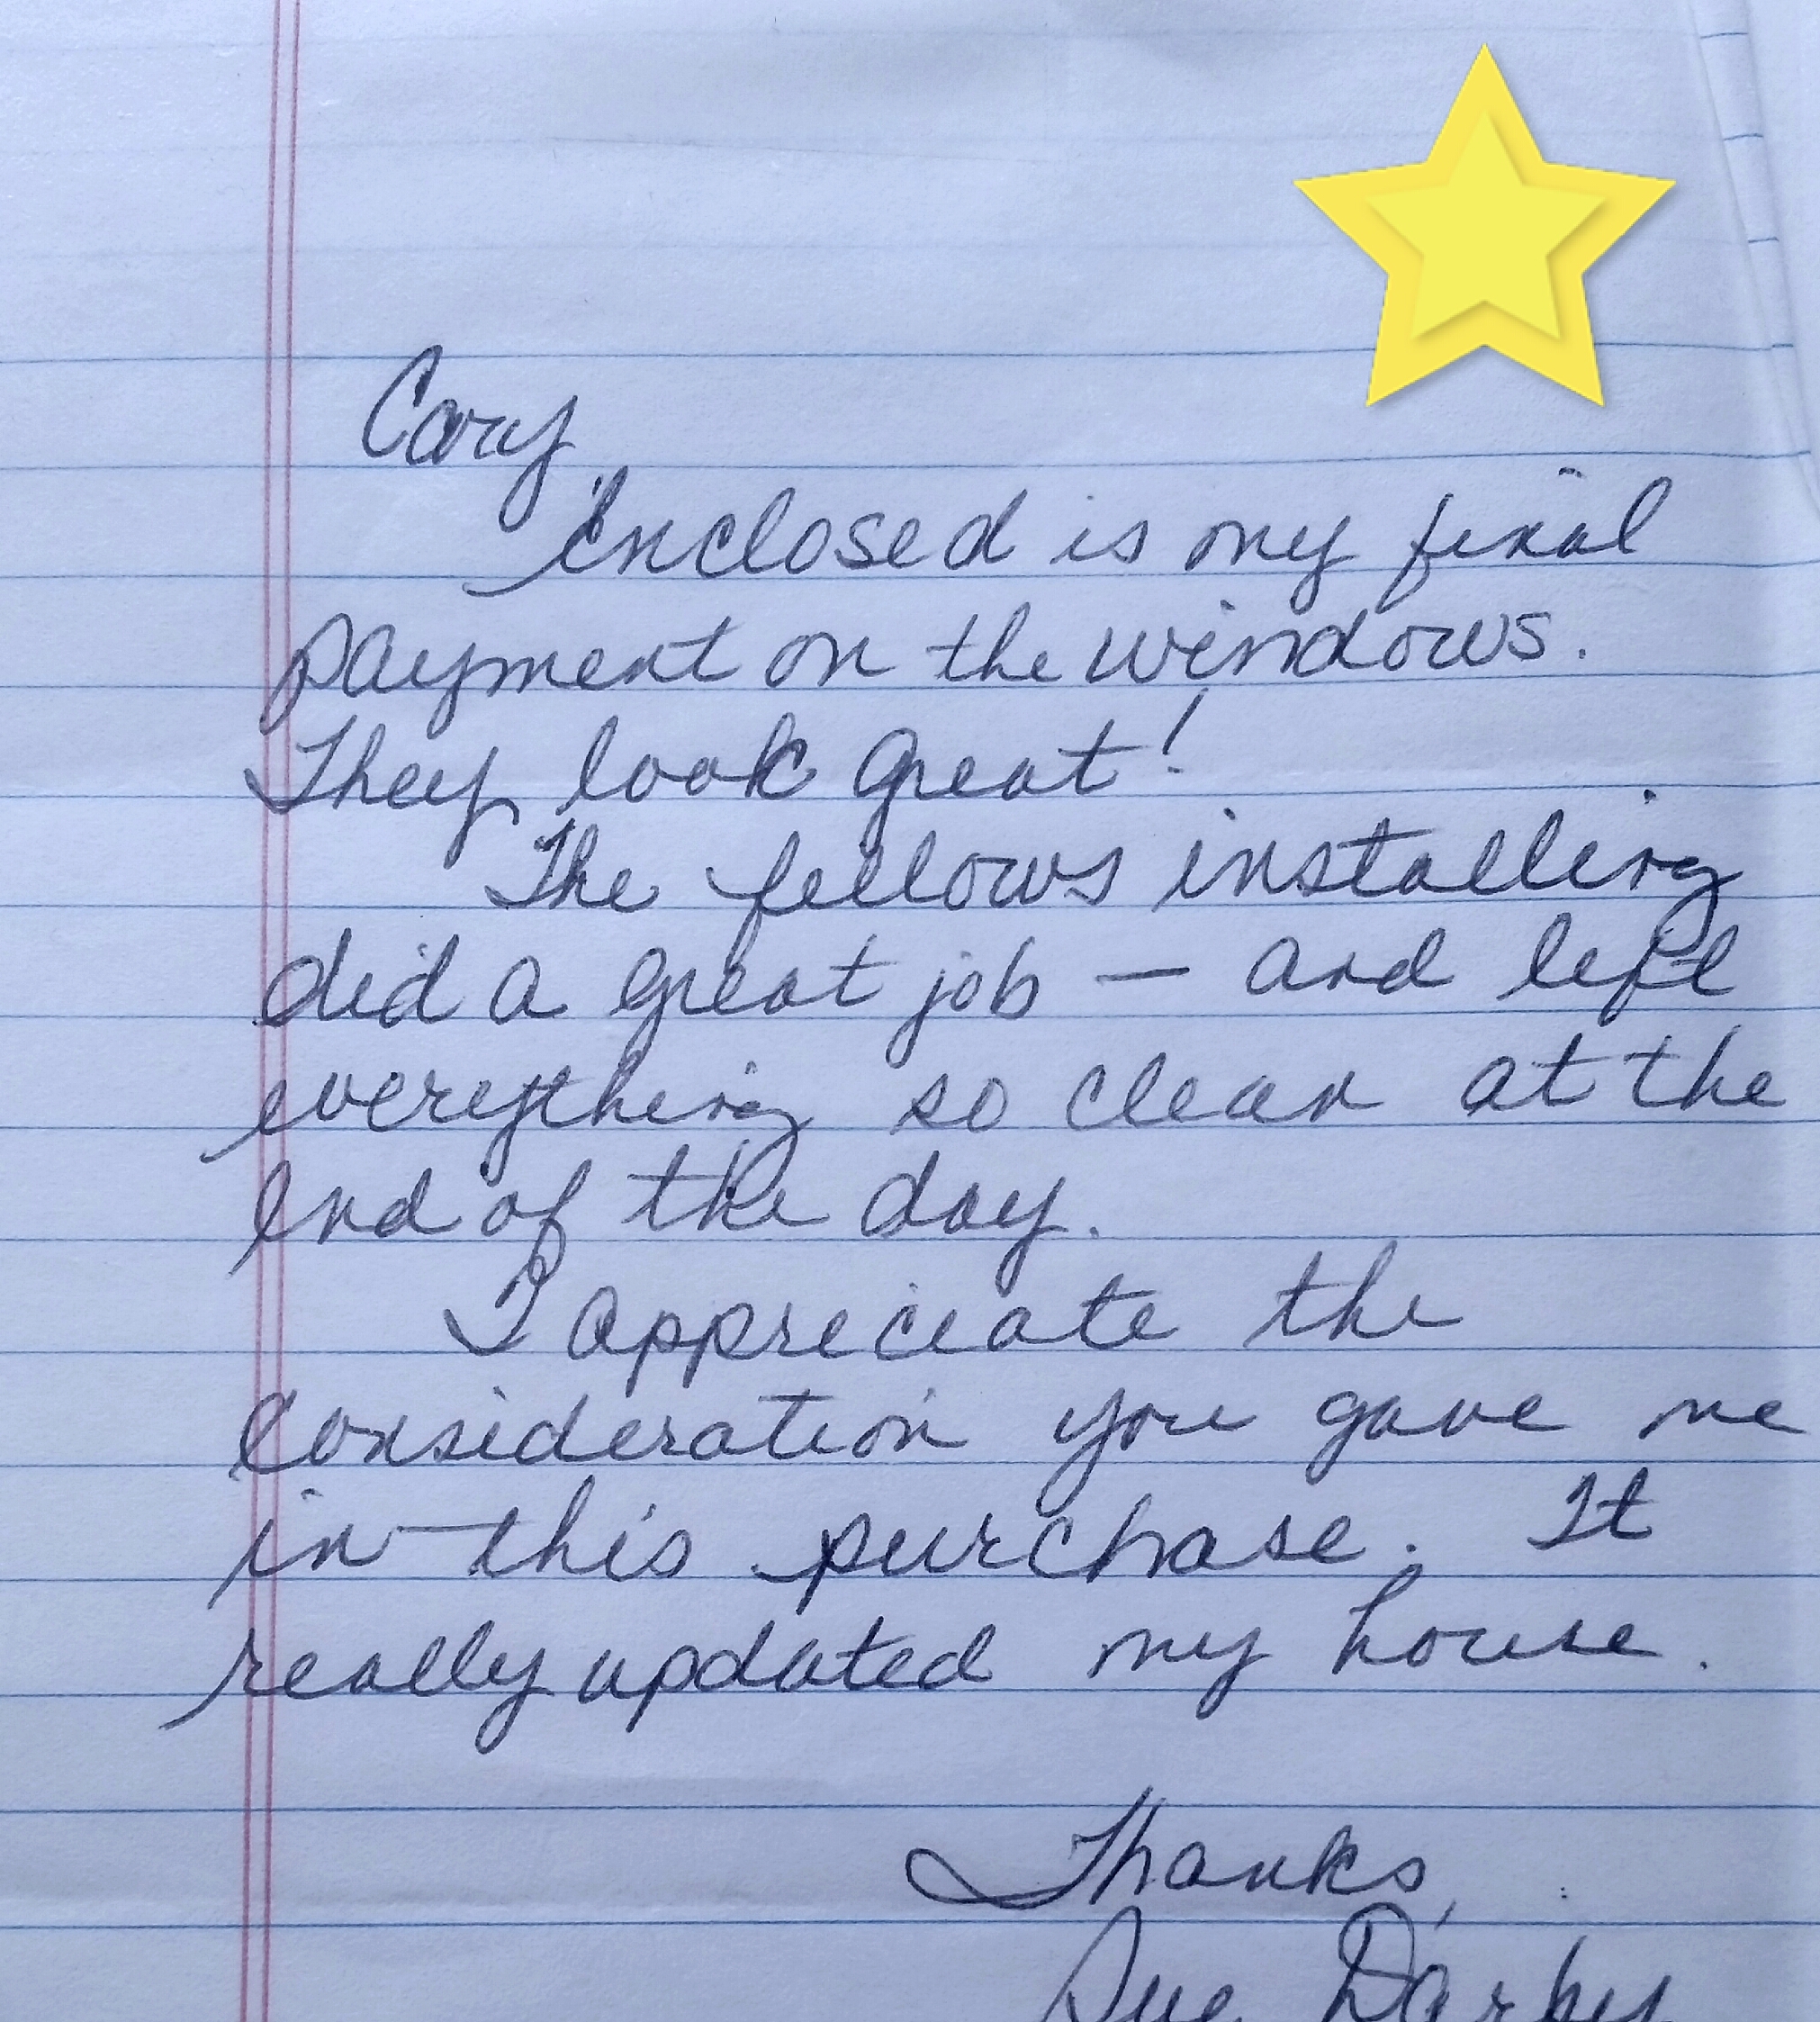 Cary,
Enclosed is my final
payment on the windows.
They look great!
The fellows installing
did a great job — and left
everything so clean at the
end of the day.
I appreciate the
consideration you gave me
in this purchase. It
really updated my house.
Thanks,
Sue Darby